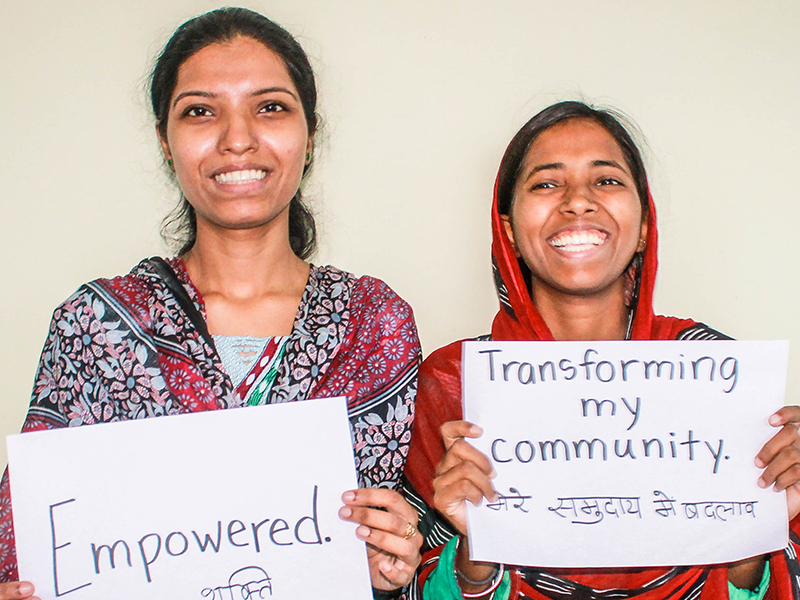 Empowered.
शक्ति
Transforming
my
community.
मेरे समुदाय में बदलाव